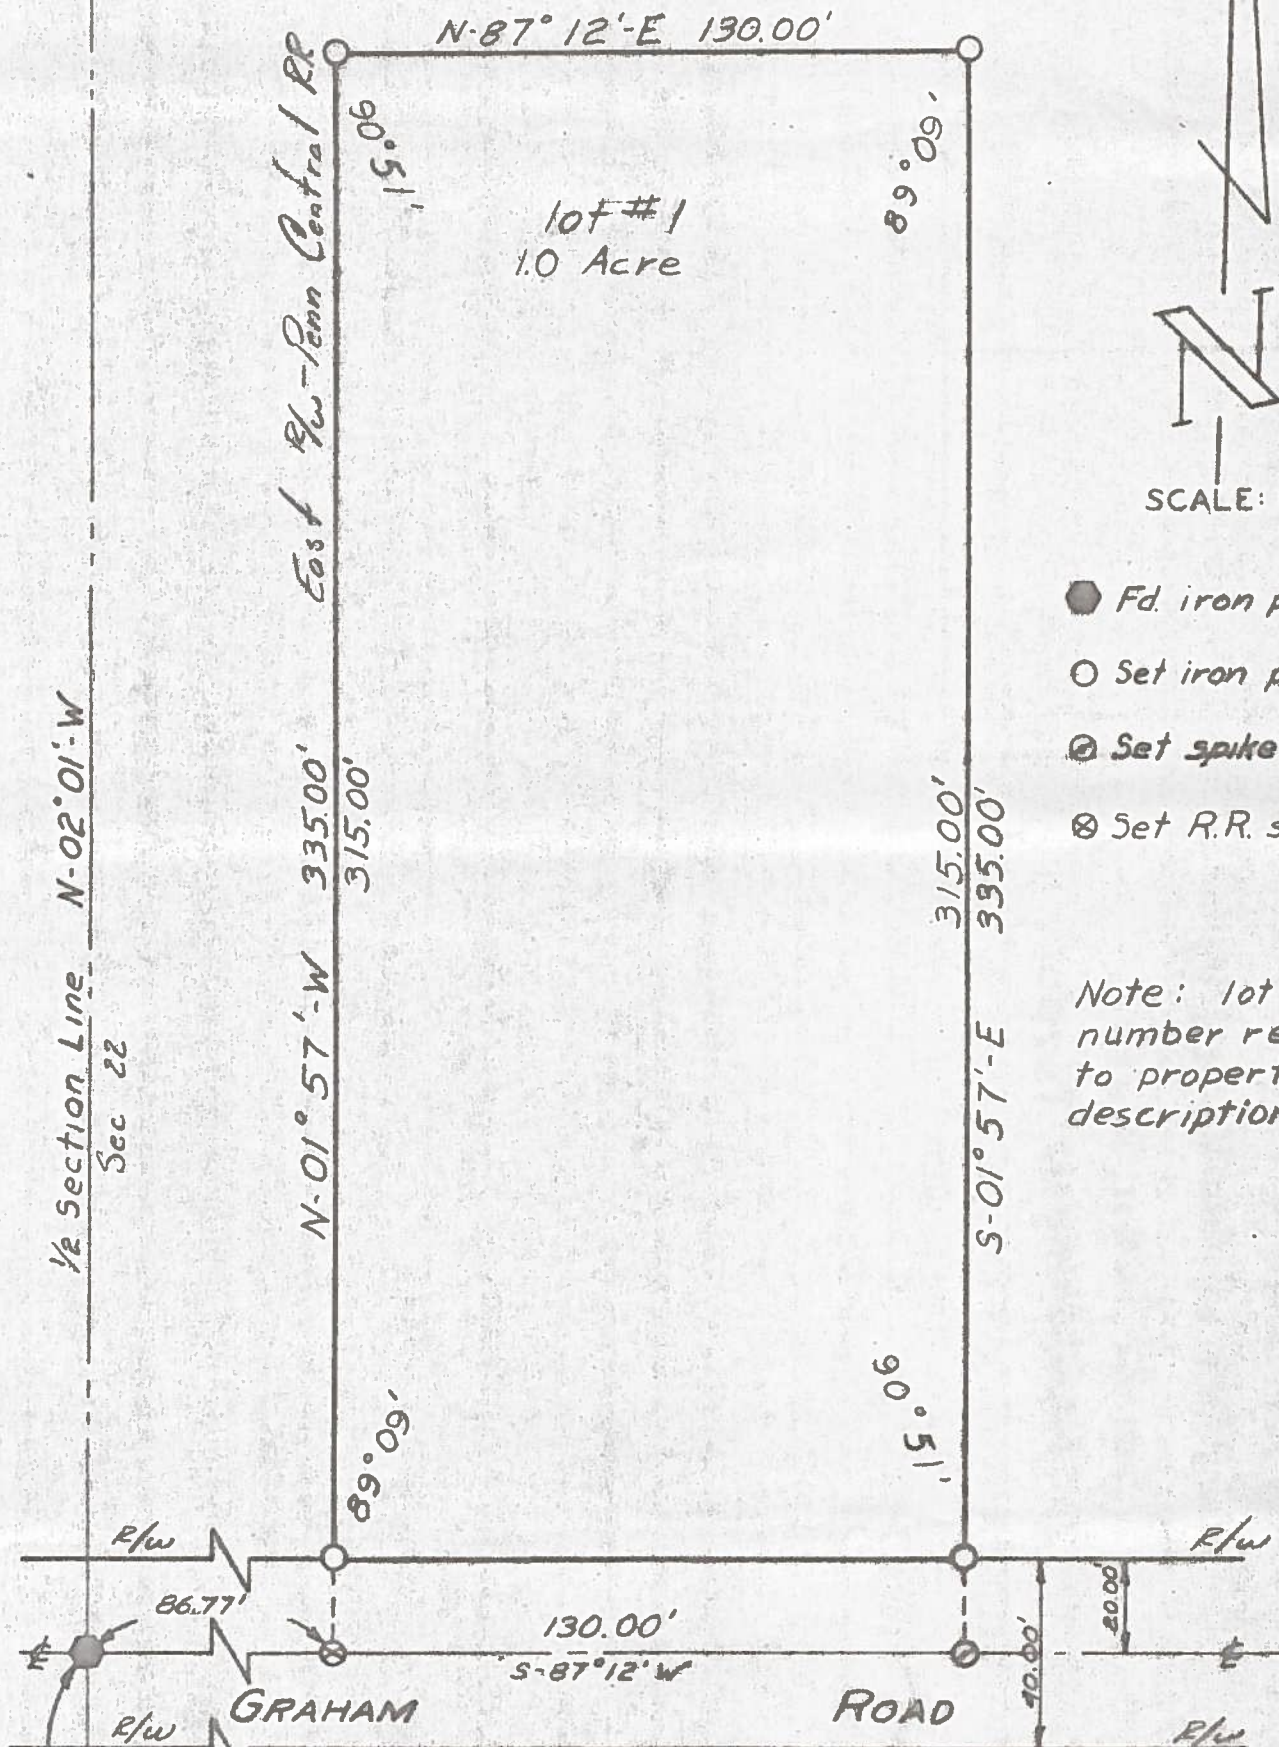 N-87° 12'-E 130.00'
East R/W-Penn Central RR
90° 51'
89° 09'
lot #1
1.0 Acre
N
SCALE:
Fd. iron p
Set iron p
Set spike
Set R.R. s
Note: lot
number re
to propert
description
1/2 Section Line N-02°01'-W
Sec 22
N-01° 57'-W 335.00'
315.00'
315.00'
S-01° 57'-E 335.00'
89° 09'
90° 51'
R/W
R/W
86.77'
130.00'
S-87°12' W
20.00'
40.00'
℄
℄
GRAHAM ROAD
R/W
R/W